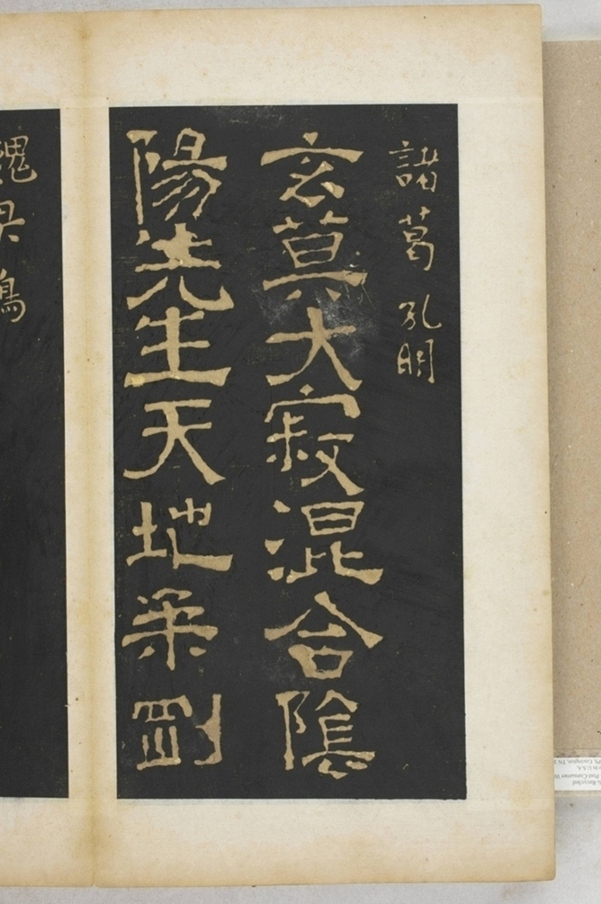 諸葛孔明
玄莫大寂混合陰
陽先生天地柔剛
魏
鳥